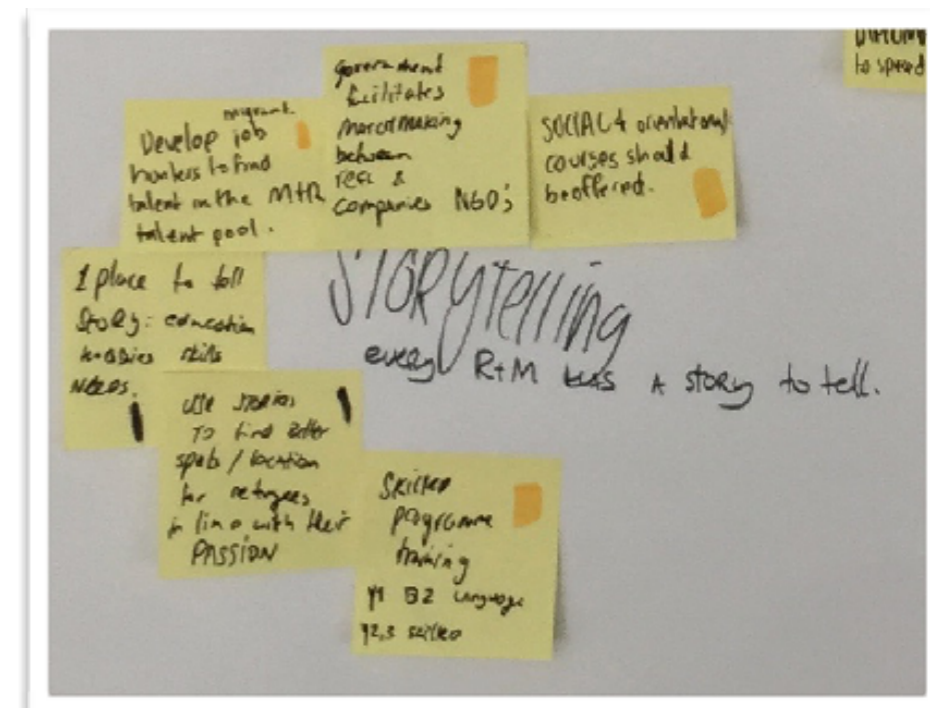 migrant
Develop job
hunters to find
talent in the M+R
talent pool.
government
facilitates
between
companies NGO's
SOCIAL & orientational
courses should
be offered.
to spread
1 place to tell
STORY: education
hobbies skills
NEEDS.
STORYtelling
every R+M has A story to tell.
USE STORIES
TO find better
spots / location
for refugees
in line with their
PASSION
SKILLED
programme
training
Y1 B2 language
Y2,3 SKILLED